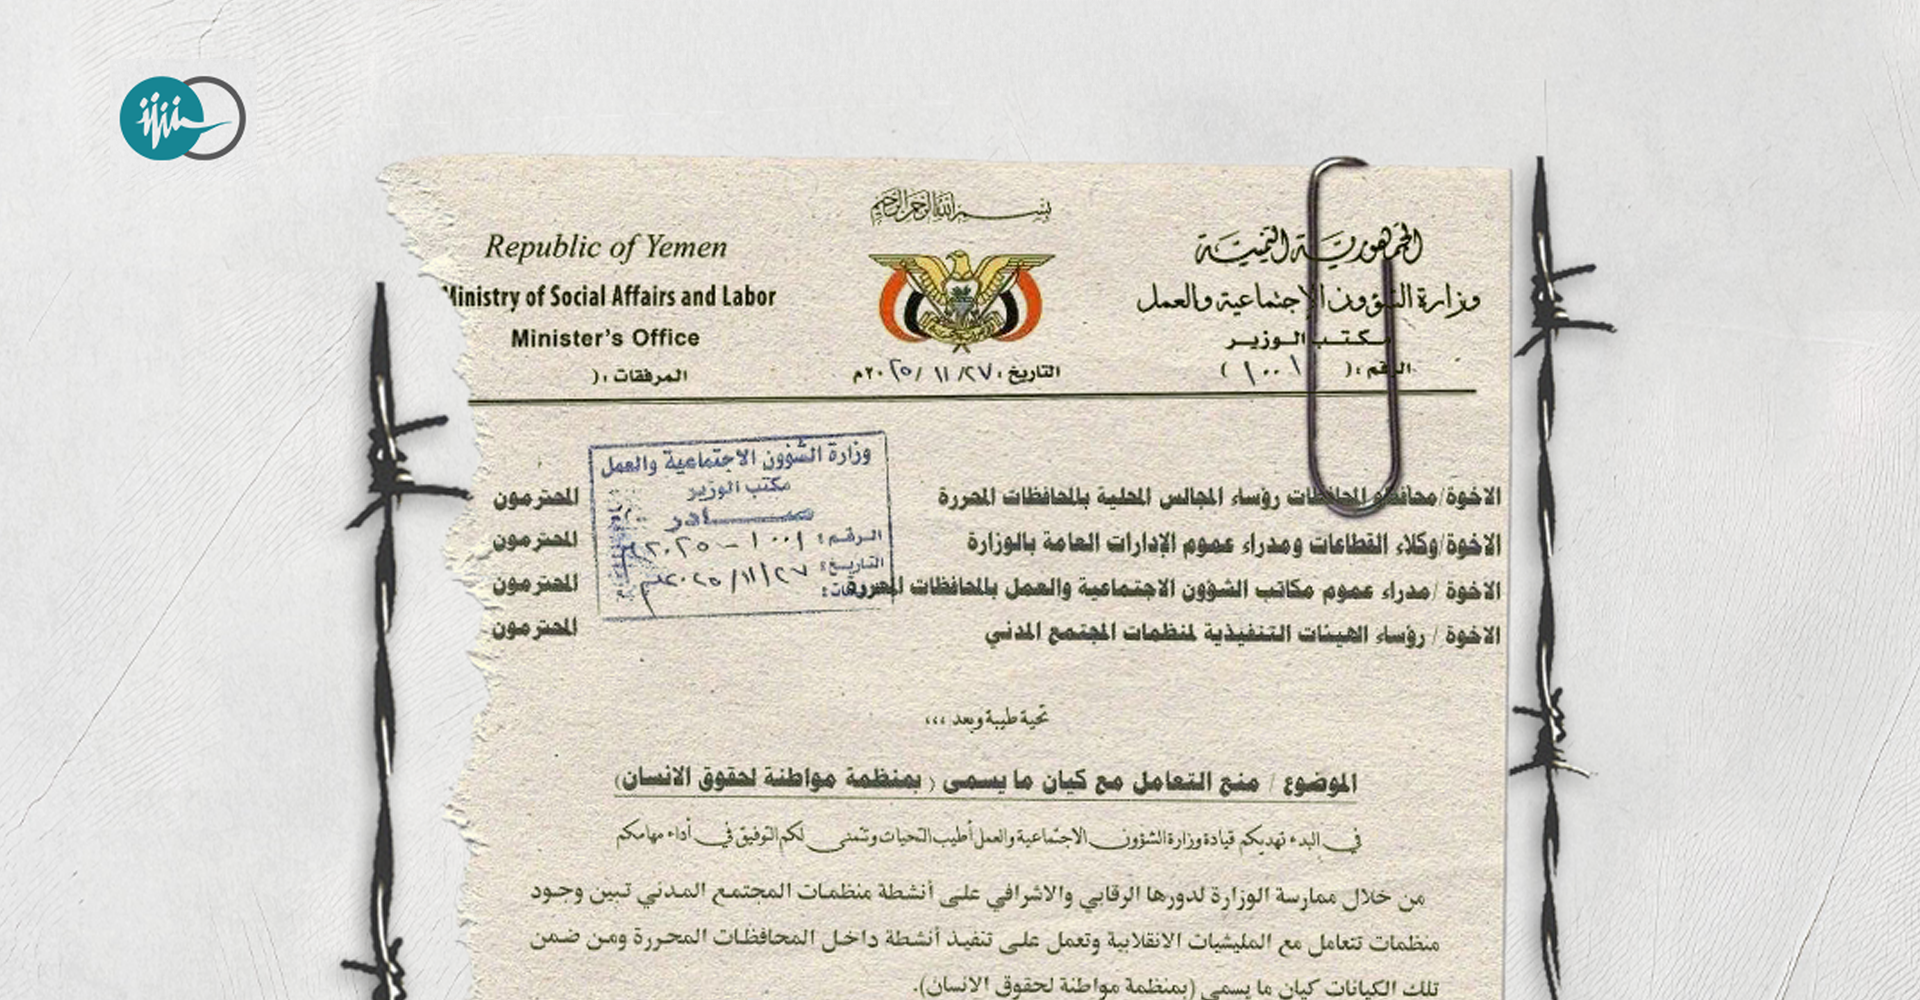 بسم الله الرحمن الرحيم
الجمهورية اليمنية
وزارة الشؤون الاجتماعية والعمل
مكتب الوزير
الرقم :( ١٠٠١ )
Republic of Yemen
Ministry of Social Affairs and Labor
Minister's Office
التاريخ : ٢٧/ ١١ /٢٠٢٥م
المرفقات :(
وزارة الشؤون الاجتماعية والعمل
مكتب الوزير
صـــــادر
الرقم: ١٠٠١ - ٢٠٢٥م
التاريخ: ٢٧/١١/٢٠٢٥م
الاخوة/محافظو المحافظات رؤساء المجالس المحلية بالمحافظات المحررة المحترمون
الاخوة/وكلاء القطاعات ومدراء عموم الإدارات العامة بالوزارة المحترمون
الاخوة /مدراء عموم مكاتب الشؤون الاجتماعية والعمل بالمحافظات المحررة المحترمون
الاخوة / رؤساء الهيئات التنفيذية لمنظمات المجتمع المدني المحترمون
تحية طيبة وبعد ،،،
الموضوع / منع التعامل مع كيان ما يسمى ( بمنظمة مواطنة لحقوق الانسان)
في البدء تهديكم قيادة وزارة الشؤون الاجتماعية والعمل أطيب التحيات وتتمنى لكم التوفيق في أداء مهامكم
من خلال ممارسة الوزارة لدورها الرقابي والاشرافي على أنشطة منظمات المجتمع المدني تبين وجود
منظمات تتعامل مع المليشيات الانقلابية وتعمل على تنفيذ أنشطة داخل المحافظات المحررة ومن ضمن
تلك الكيانات كيان ما يسمى (بمنظمة مواطنة لحقوق الانسان).